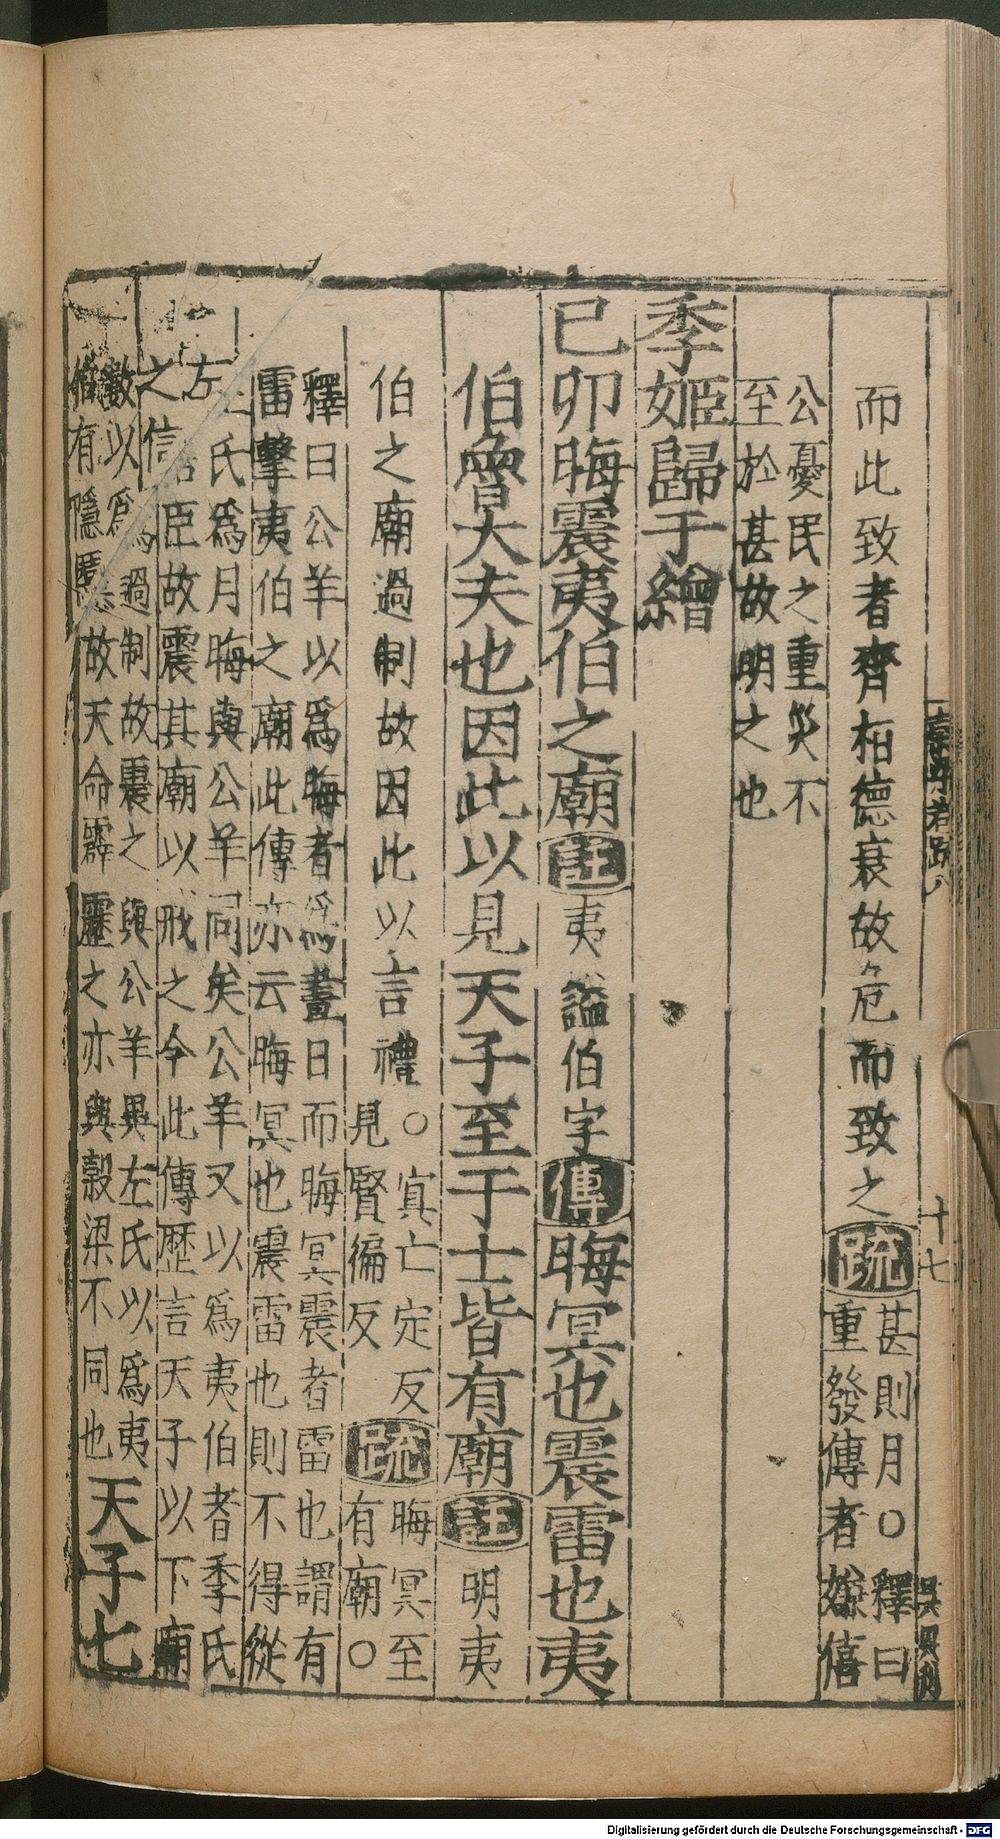 而此致者齊桓德衰故危而致之疏甚則月○釋曰
重發傳者嫌僖
公憂民之重災不
至於甚故明之也
季姬歸于繒
已卯晦震夷伯之廟註夷謚伯字傳晦冥也震雷也夷
伯魯大夫也因此以見天子至于士皆有廟註明夷
伯之廟過制故因此以言禮○冥亡定反
見賢徧反疏晦冥至
有廟○
釋曰公羊以爲晦者爲晝日而晦冥震者雷也謂有
雷擊夷伯之廟此傳亦云晦冥也震雷也則不得從
左氏爲月晦與公羊同矣公羊又以爲夷伯者季氏
之信臣故震其廟以戒之今此傳歷言天子以下廟
數以爲過制故震之與公羊異左氏以爲夷
伯有隱慝故天命霹靂之亦與穀梁不同也天子七
十七
Digitalisierung gefördert durch die Deutsche Forschungsgemeinschaft - DFG